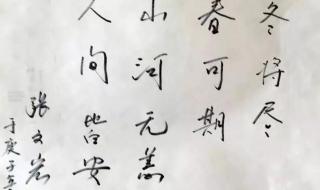 冬将尽
春可期
山河无恙
人间皆安
张文岩
于庚子年